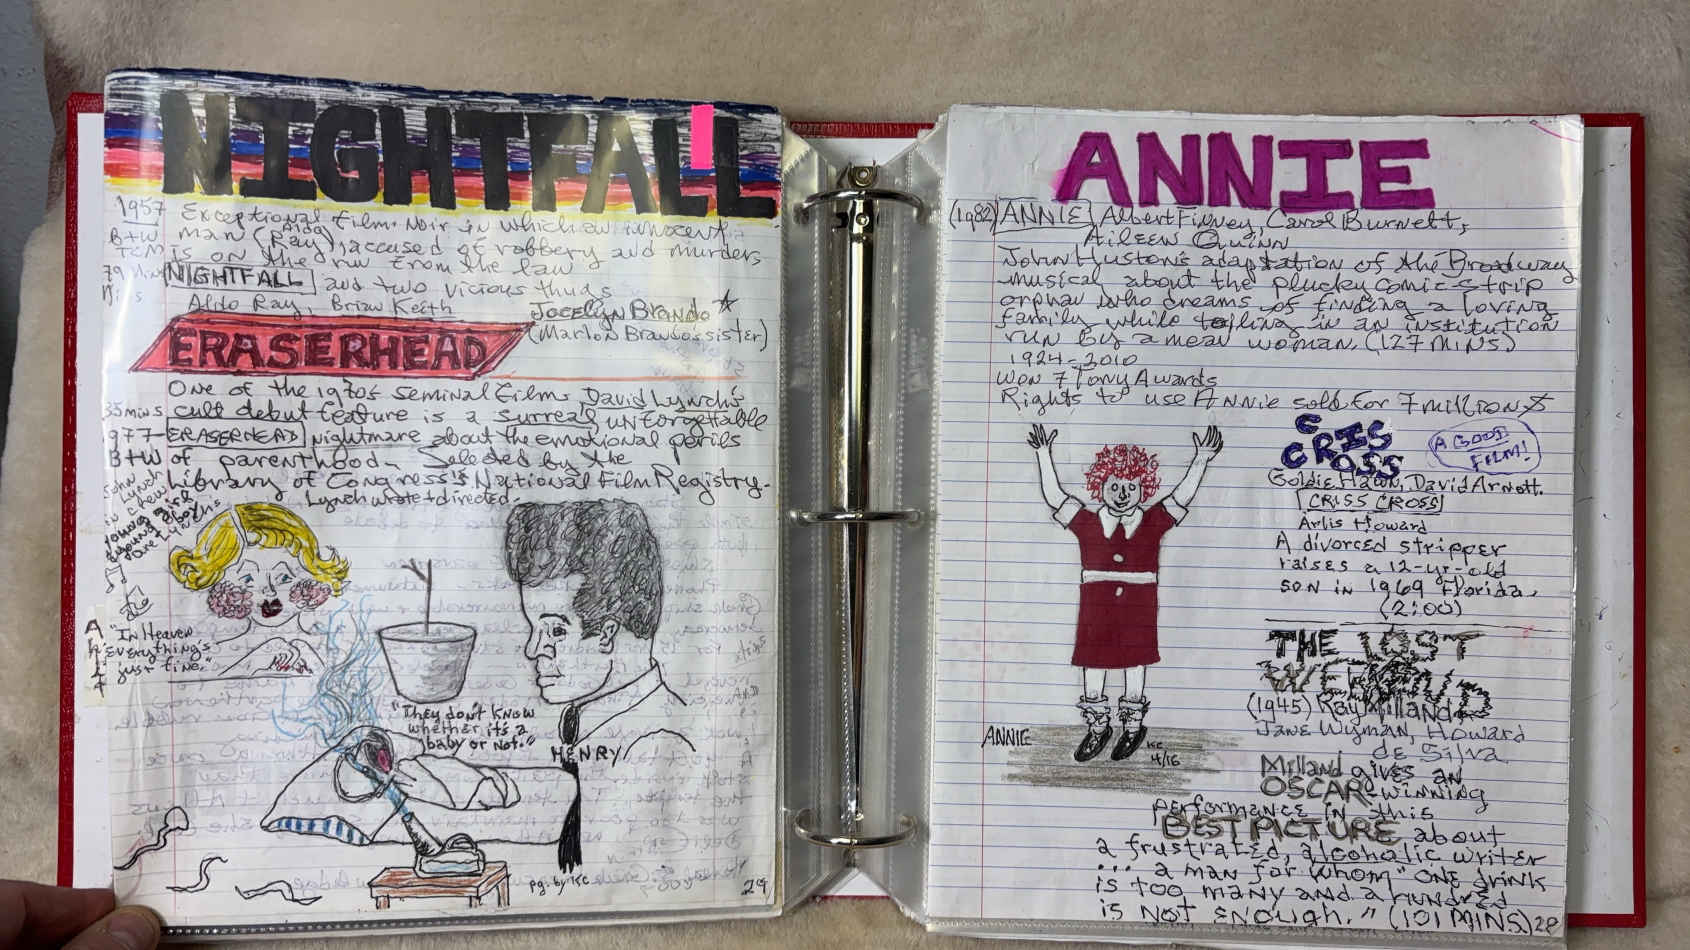 NIGHTFALL
1957 Exceptional Film Noir in which an innocent
B+W man (Aldo Ray) accused of robbery and murders
TCM is on the run from the law
79 Mins NIGHTFALL and two vicious thugs
Aldo Ray, Brian Keith Jocelyn Brando ☆
(Marlon Brando's sister)
ERASERHEAD
One of the 1970s seminal films David Lynch's
cult debut feature is a surreal, unforgettable
1977 - ERASERHEAD nightmare about the emotional perils
B+W of parenthood. Selected by the
Library of Congress's National Film Registry.
Lynch wrote + directed.
"In Heaven
everything's
just fine."
"They don't know
whether it's a
baby or not."
HENRY
pg. by KC
29
ANNIE
(1982) ANNIE Albert Finney, Carol Burnett,
Aileen Quinn
John Huston's adaptation of the Broadway
musical about the plucky comic-strip
orphan who dreams of finding a loving
family while toiling in an institution
run by a mean woman. (127 MINS)
1924-2010
Won 7 Tony Awards
Rights to use Annie sold for 7 million $
CRISS
CROSS
A GOOD
FILM!
Goldie Hawn, David Arnott.
CRISS CROSS
Arlis Howard
A divorced stripper
raises a 12-yr-old
son in 1969 Florida.
(2:00)
THE LOST
WEEKEND
(1945) Ray Milland
Jane Wyman, Howard
de Silva
Milland gives an
OSCAR-winning
performance in this
BEST PICTURE about
a frustrated, alcoholic writer
... a man for whom "ONE drink
is too many and a hundred
is not enough." (101 MINS) 28
ANNIE
KC
4/16